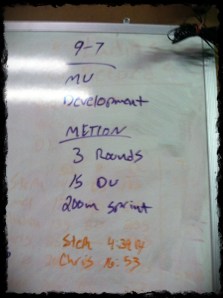 9-7
MU
Development
METCON
3 Rounds
15 DU
200m sprint
Chris 16:53